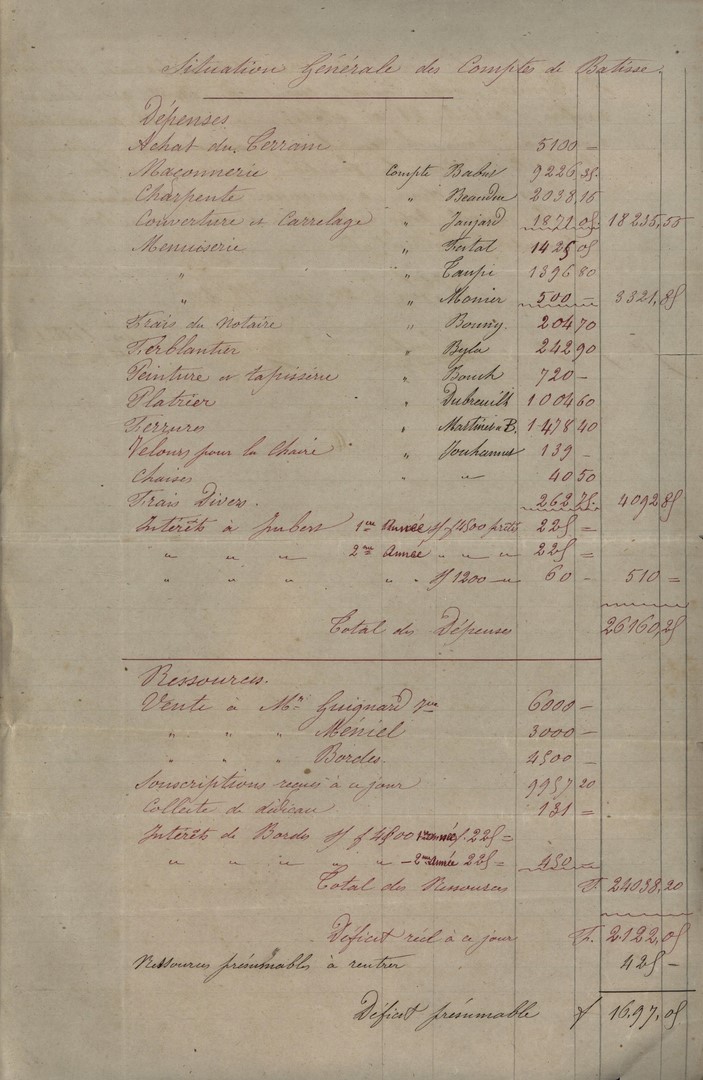 Situation Générale des Comptes de Batisse.
Dépenses
Achat du Terrain 5100 =
Maçonnerie Compte Babut 9226,35
Charpente " 2038,15
Couverture et Carrelage " Jaujard 1871,05 18235,55
Menuiserie " Festal 1425 05
" " Taupi 1396 80
" " Monier 500 — 3321,85
Frais du Notaire " Bonny. 204 70
Ferblantier " Byla 242 90
Peinture et tapisserie " 720 —
Platrier " Dubreuilh 1004 60
Ferrures " Martinet B. 1478 40
Velours pour la Chaire " Jouhannet 139 —
Chaises " " 40 50
Frais Divers. 262 75 4092,85
Intérêts à Jubert 1ere Année s/ f 4500 prêté 225 =
" " " 2me Année " " " 225 =
" " " " " s/ 1200 — " 60 — 510 =
Total des Dépenses 26160,25
Ressources.
Vente à Mr Guignard 6000 —
" " " Méniel 3000 —
" " " Bordes. 4500 —
Souscriptions reçues à ce jour 9957 20
Collecte de dédicace 131 =
Intérêts de Bordes s/ f 4500 1ere année f. 225 =
" " " " " — 2me Année 225 = 450 —
Total des Ressources F. 24038,20
Déficit réel à ce jour F. 2122,05
Ressources présumables à rentrer 425 —
Déficit présumable f 1697,05